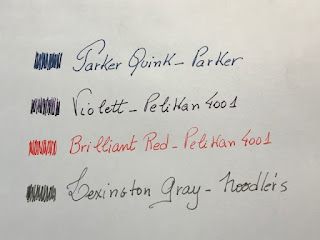 Parker Quink - Parker
Violett - Pelikan 4001
Brilliant Red - Pelikan 4001
Lexington Gray - Noodler's